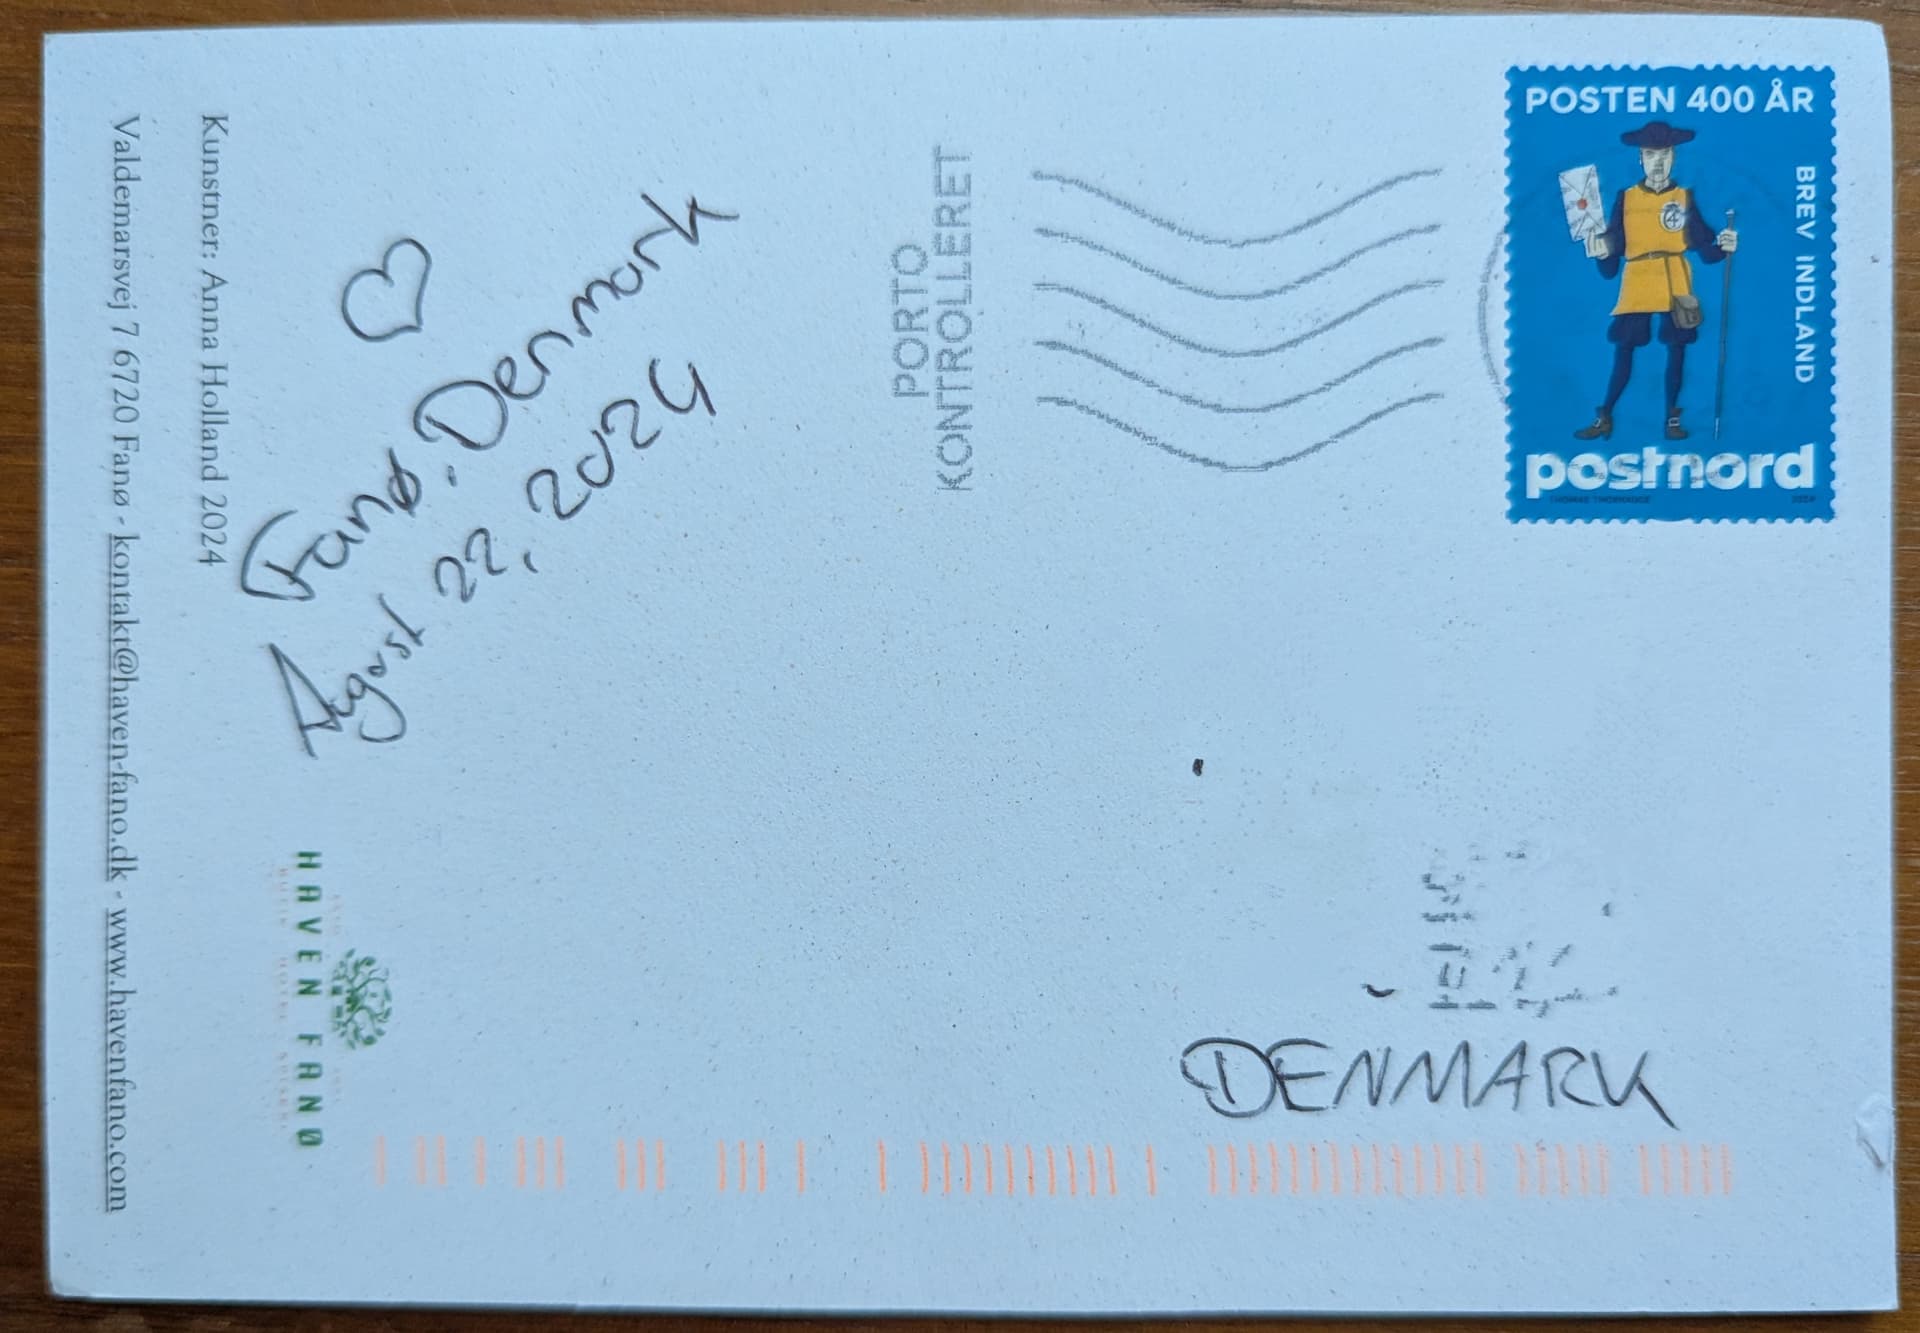 POSTEN 400 ÅR
BREV INDLAND
postnord
THOMAS THORHAUGE 2024
PORTO
KONTROLLERET
Fanø. Denmark
August 22, 2024
DENMARK
HAVEN FANØ
Kunstner: Anna Holland 2024
Valdemarsvej 7 6720 Fanø - kontakt@haven-fano.dk - www.havenfano.com